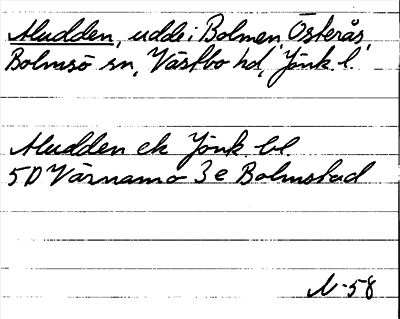 Aludden, udde i Bolmen, Österås,
Bolmsö sn, Västbo hd, Jönk. l.
Aludden ek Jönk. bl.
5D Värnamo 3e Bolmstad
N-58